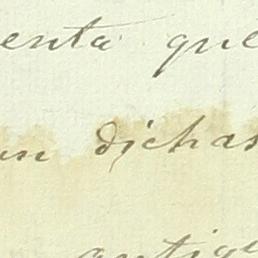 enta que
un dichas
antigu